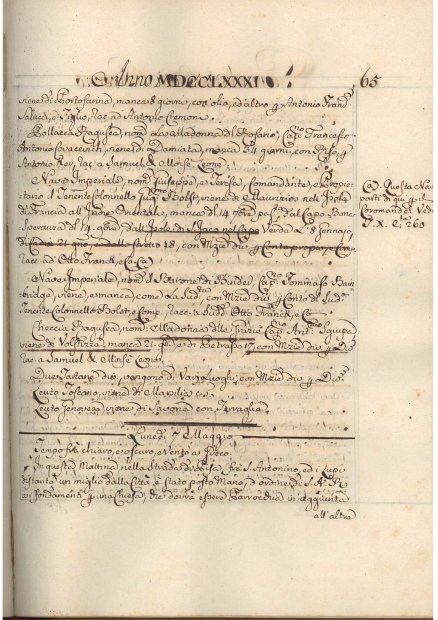 Anno MDCCLXXXI
65
viene di Portofarina, manca 8 giorni, con olio, ed altro p Antonio Frand
e Figlio, rac. ad Antonio Clemoni
Pollacca Ragusea, nom. La Madonna del Rosario, Cap. Francesco
Antonio viene di Damiata, manca 54 giorni, con Riso p
Antonio Rev. rac. a Samuel e Moisè Leone
Nave Imperiale, nom. Giuseppe, e Teresa, Comandante, e Propie-
tario il Tenente Colonnello Gug. Bolst, viene di Maurizio nell' Isola
di Francia all' Indie Orientali, manca del 14 7bre pas. dal Capo Bona
Speranza il 4 dall' Isole di S. Jaco nel Capo Verda l' 8 Gennajo
di 21 gio. e dallo stretto 18, con Mzie div. p Conto proprio, e Comp.
rac. ad Otto Franck, e Co.
Nave Imperiale, nom. il Barone di Binder, Cap. Tommaso Bain
bridge, viene, e manca, come la Sud. con Mzie div. p Conto di Sud.
Tenente Colonnello Bolst, e Comp. rac. a Sudd. Otto Franck, e Co.
Checcia Ragusea, nom. Madonna delle Grazie Cap. Ant.
viene di Volstizza, manca 21 gio. e di 17, con Mzie div. p
rac. a Samuel e Moisè Leone
Due Tartane div. vengono di Varj Luoghi, con Mzie div. p Div.
Leuto Toscano, viene di Marsilia
Leuto Genovese, viene di Savona con Terraglia
Lunedi 7 Maggio
Tempo frà chiaro, e oscuro, e Vento a
In questa Mattina nella Strada di Pisa, frà S. Antonino, ed i Lupi
distante un miglio dalla Città è stato posto Mano, d'ordine di S. A. R.
ai fondamenti p una Chiesa, che dovrà esser Parrocchia in aggiunta
all' altra
Questa Nave
partì di quì p il
Coromandel Ved.
T. X. C. 260